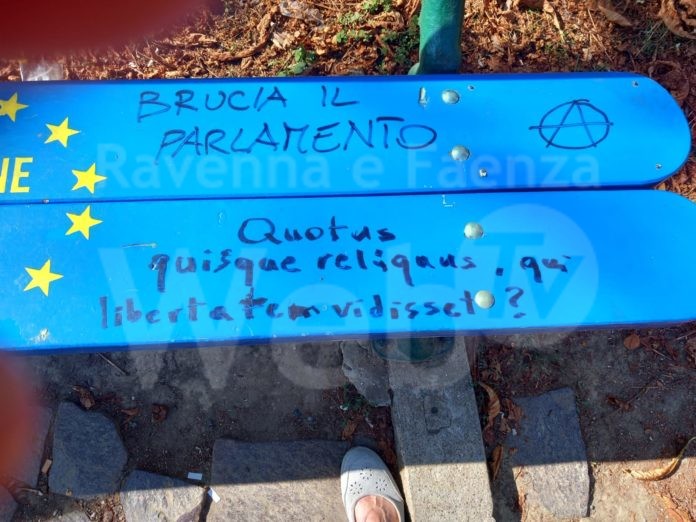 BRUCIA IL
PARLAMENTO
NE
Quotus
quisque reliquus, qui
libertatem vidisset?
Ravenna e Faenza
Web
Tv